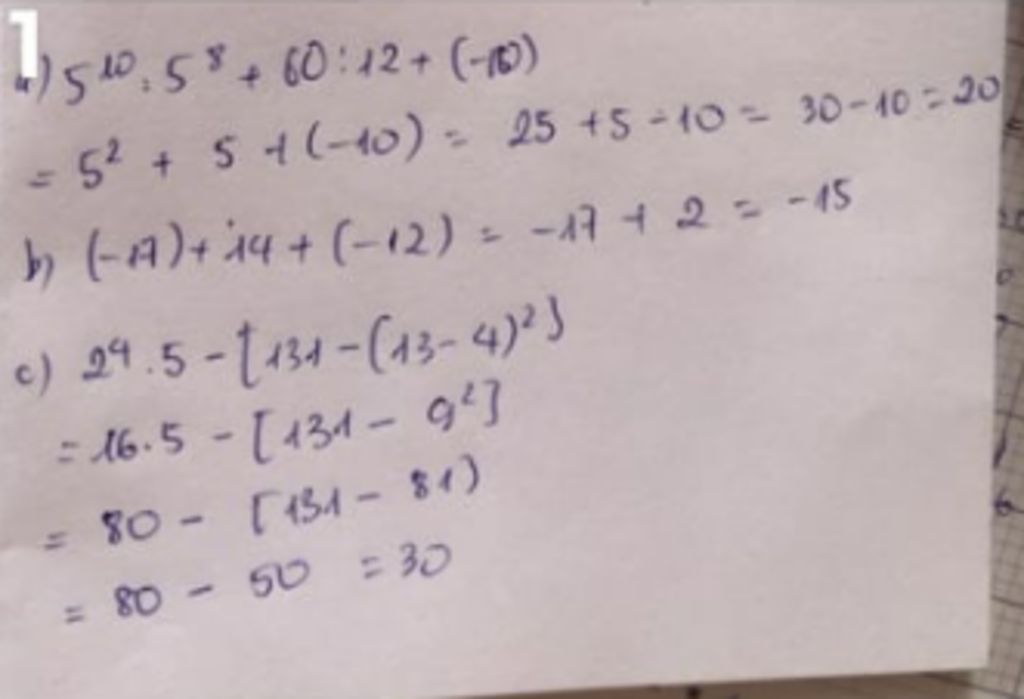 1
a) 5¹⁰ : 5⁸ + 60 : 12 + (-10)
= 5² + 5 + (-10) = 25 + 5 - 10 = 30 - 10 = 20
b) (-17) + 14 + (-12) = -17 + 2 = -15
c) 2⁴ . 5 - [131 - (13 - 4)²]
= 16 . 5 - [131 - 9²]
= 80 - [131 - 81)
= 80 - 50 = 30